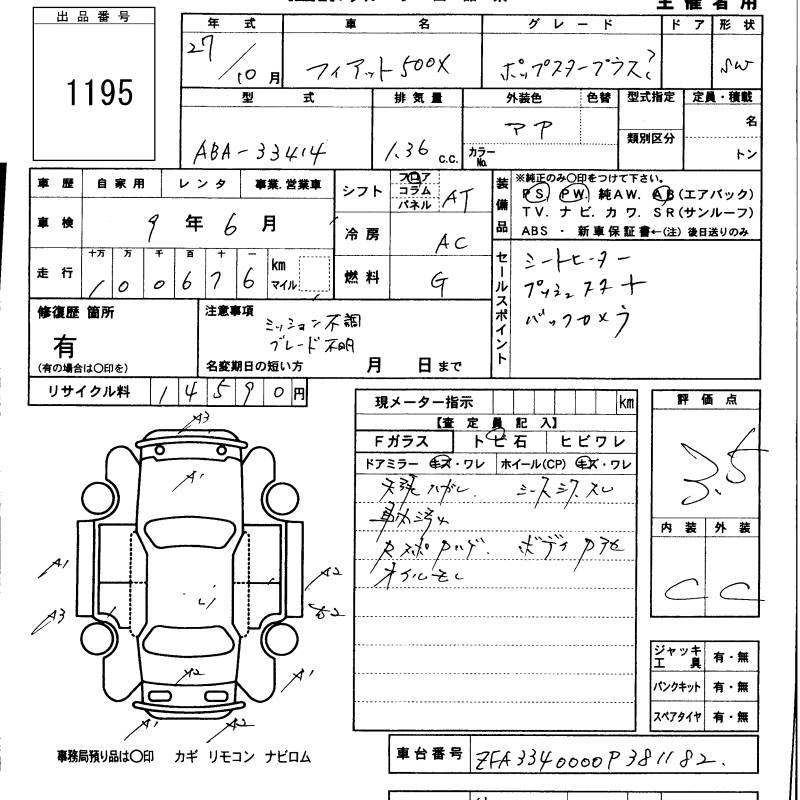 主催者用
出品番号
1195
年式 車名 グレード ドア 形状
27/10月 フィアット500X ポップスタープラス? SW
型式 排気量 外装色 色替 型式指定 定員・積載
類別区分 名
ABA-33414 1.36 c.c. カラーNo. トン
車歴 自家用 レンタ 事業.営業車
車検 9年6月
十万 万 千 百 十 一
走行 100676 km マイル
シフト フロア コラム パネル AT
冷房 AC
燃料 G
装備品
※純正のみ〇印をつけて下さい。
PS. PW. 純AW. AB(エアバック)
TV. ナビ. カワ. SR(サンルーフ)
ABS ・ 新車保証書←(注) 後日送りのみ
セールスポイント
シートヒーター
プッシュスタート
バックカメラ
修復歴 箇所
有
(有の場合は〇印を)
注意事項
ミッション不調
ブレード不明
名変期日の短い方 月 日まで
リサイクル料 14590円
現メーター指示 km
【査定員記入】
Fガラス トビ石 ヒビワレ
ドアミラー キズ・ワレ ホイール(CP) キズ・ワレ
天張ハガレ シースシワスレ
オイルモレ
評価点
3.5
内装 外装
C C
A3
A1
A1 A2
A3
A2 A1
A1 A2
ジャッキ工具 有・無
パンクキット 有・無
スペアタイヤ 有・無
事務局預り品は〇印 カギ リモコン ナビロム
車台番号 ZFA3340000P381182.